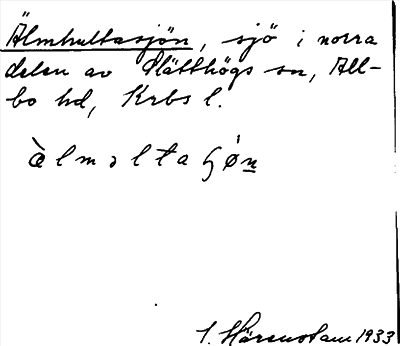 Älmhultasjön, sjö i norra
delen av Slätthögs sn, All-
bo hd, Krbs l.
èlmɔltaʃǿn
1933